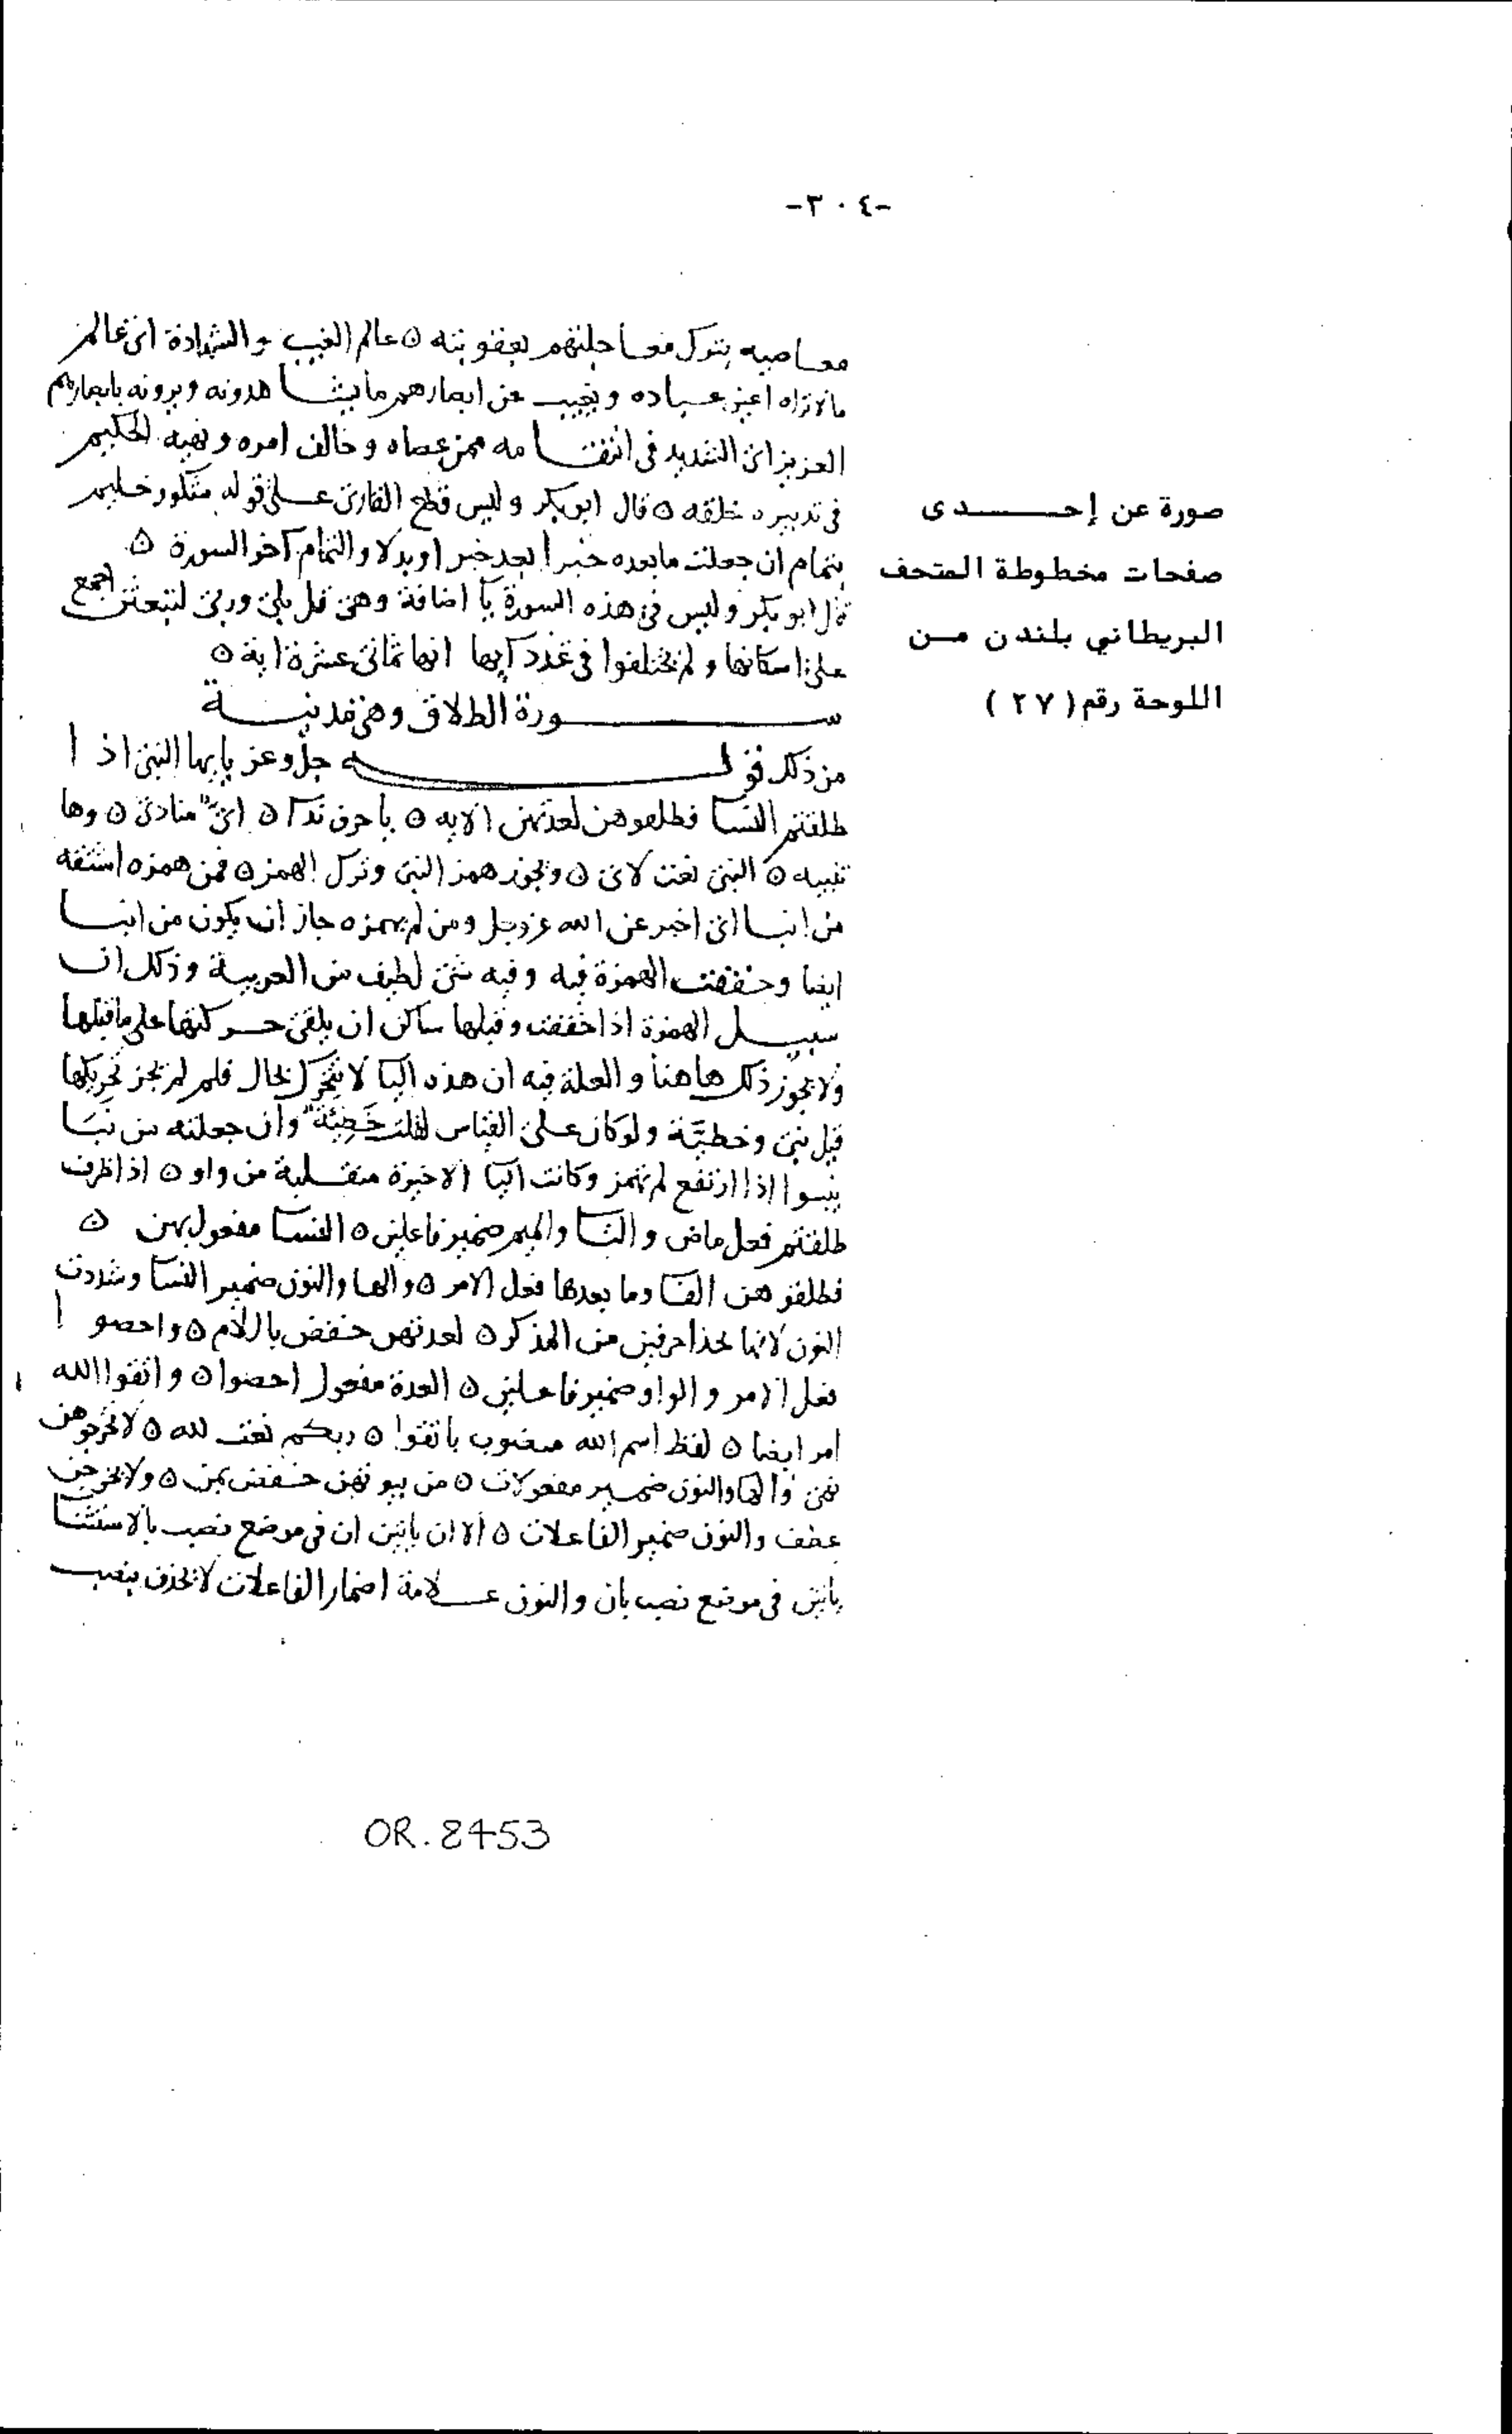 -٣٠٤-
صورة عن إحدى
صفحات مخطوطة المتحف
البريطاني بلندن من
اللوحة رقم (٢٧)
معاصيه بترك معاجلتهم بعقوبته ٥ عالم الغيب والشهادة اى عالم
مالا تراه اعين عباده ويغيب عن ابصارهم ما يشاهدونه ويرونه بابصارهم
العزيز اى الشديد فى انتقامه ممن عصاه وخالف امره ونهيه الحكيم
فى تدبيره خلقه ٥ قال ابوبكر وليس قطع القارئ على قوله شكور حليم
بتمام ان جعلت ما بعده خبرا بعد خبر او بدلا والتمام آخر السورة ٥
قال ابوبكر وليس فى هذه السورة يآ اضافة وهى قل بلى وربى لتبعثن اجمع
على اسكانها ولم يختلفوا فى عدد آيها انها ثمانى عشرة اية ٥
سورة الطلاق وهى مدنية
من ذلك قوله جل وعز يايها النبى اذا
طلقتم النسآ فطلقوهن لعدتهن الايه ٥ يا حرف ندآ ٥ اىّ منادى ٥ وها
تنبيه ٥ النبى نعت لاى ٥ ويجوز همز النبى وترك الهمز ٥ فمن همزه اشتقه
من انبا اى اخبر عن الله عز وجل ومن لم يهمزه جاز ان يكون من انبا
ايضا وخففت الهمزة فيه وفيه شى لطيف من العربية وذلك ان
سبيل الهمزة اذا خففت وقبلها ساكن ان يلقى حركتها على ما قبلها
ولا يجوز ذلك هاهنا والعلة فيه ان هذه اليآ لا تتحرك بحال فلم لم يجز تحريكها
قيل نبى وخطيّة ولو كان على القياس لقلت خَطِيَة وان جعلته من نبَا
ينبوا اذا ارتفع لم تهمز وكانت اليآ الاخيرة منقلبة من واو ٥ اذا ظرف
طلقتم فعل ماض والتآ والميم ضمير فاعلين ٥ النسآ مفعول بهن ٥
فطلقوهن الفآ وما بعدها فعل الامر ٥ والها والنون ضمير النسآ وشددت
النون لانها بحذا حرفين من المذكر ٥ لعدتهن خفض باللام ٥ واحصوا
فعل الامر والواو ضمير فاعلين ٥ العدة مفعول احصوا ٥ واتقوا الله
امر ايضا ٥ لفظ اسم الله منصوب باتقوا ٥ ربكم نعت لله ٥ لا تخرجوهن
نهى والها والنون ضمير مفعولات ٥ من بيوتهن خفض بمن ٥ ولا يخرجن
عطف والنون ضمير الفاعلات ٥ الا ان ياتين ان فى موضع نصب بالاستثنآ
ياتين فى موضع نصب بان والنون علامة اضمار الفاعلات لا تحذف بنصب
OR. 8453